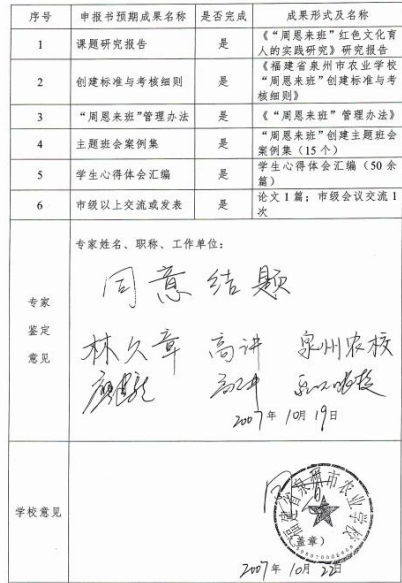 序号 申报书预期成果名称 是否完成 成果形式及名称
1 课题研究报告 是 《“周恩来班”红色文化育
人的实践研究》研究报告
2 创建标准与考核细则 是 《福建省泉州市农业学校
“周恩来班”创建标准与考
核细则》
3 “周恩来班”管理办法 是 《“周恩来班”管理办法》
4 主题班会案例集 是 “周恩来班”创建主题班会
案例集(15个)
5 学生心得体会汇编 是 学生心得体会汇编(50余
篇)
6 市级以上交流或发表 是 论文1篇;市级会议交流1
次
专家
鉴定
意见
专家姓名、职称、工作单位:
同意结题
林久章 高讲 泉州农校
高讲
2007年10月19日
学校意见
同意
福建省泉州市农业学校
(盖章)
2007年10月22日